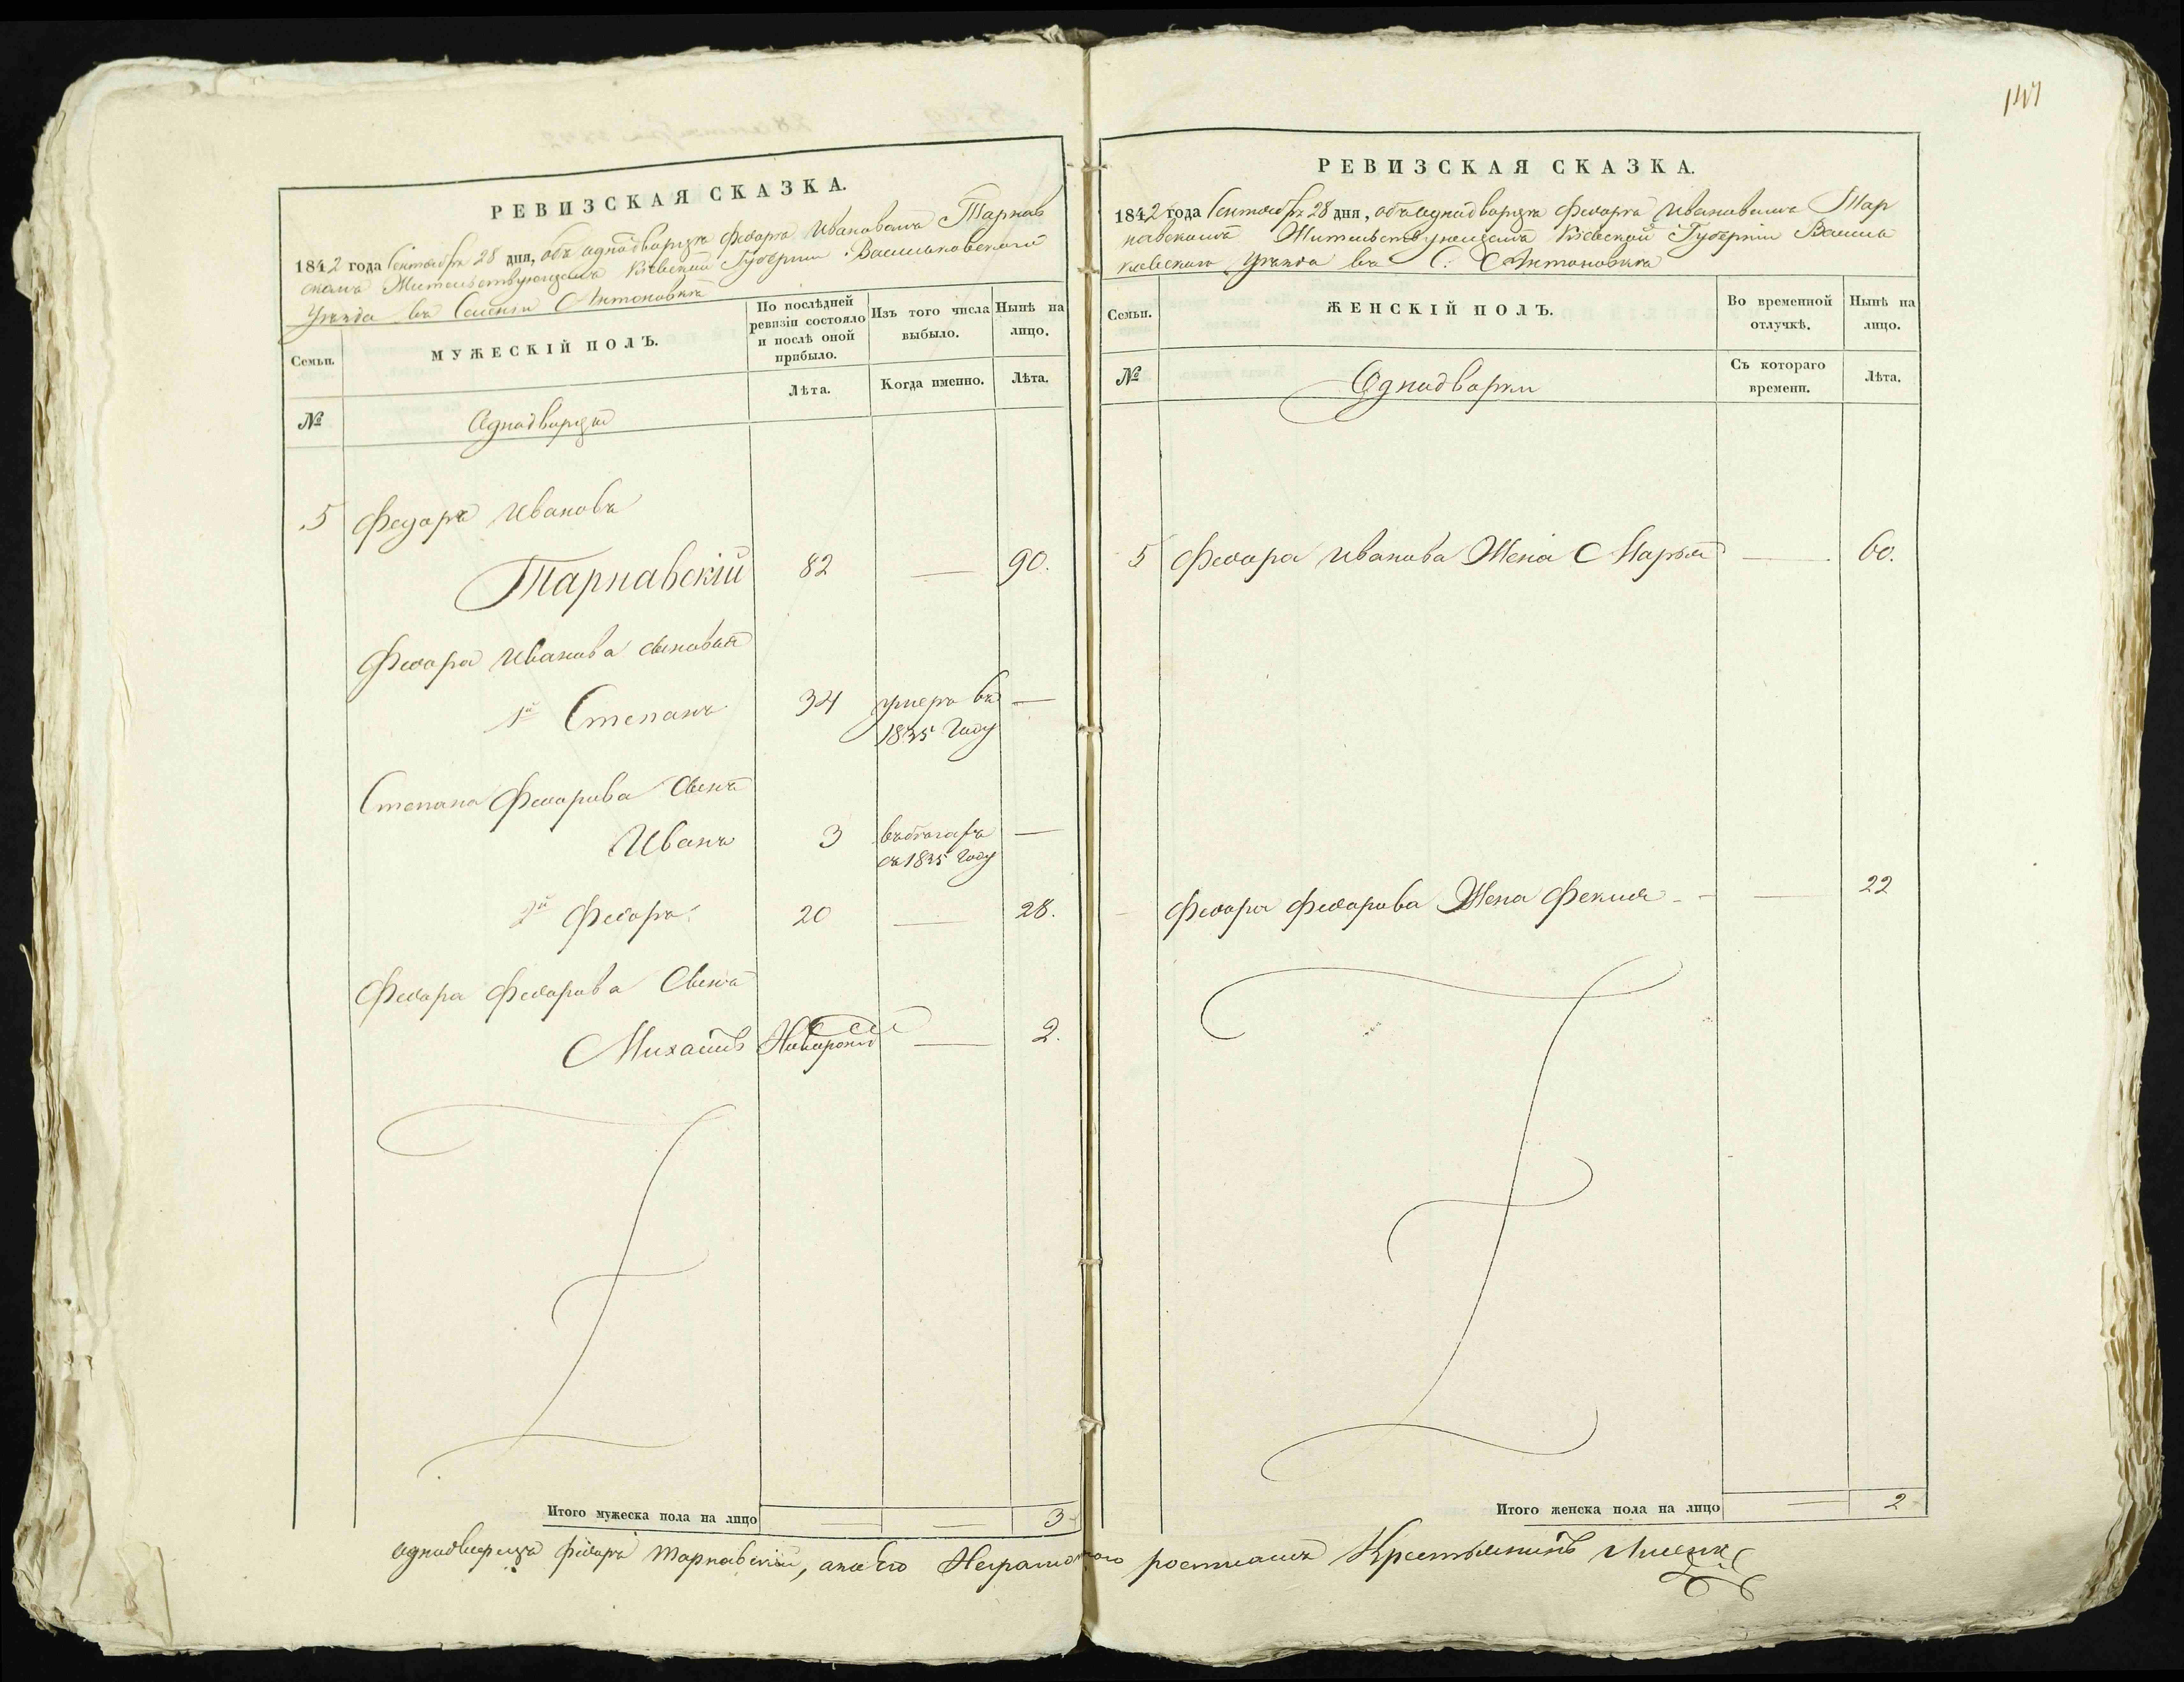 147
РЕВИЗСКАЯ СКАЗКА.
1842 года Сентября 28 дня, объ однодворцѣ Федорѣ Ивановомъ Тарнав
скомъ Жительствующемъ Кіевской Губерніи Васильковского
Уѣзда въ Селеніи Антоновкѣ
Семьи.
МУЖЕСКІЙ ПОЛЪ.
По послѣдней ревизіи состояло и послѣ оной прибыло.
Изъ того числа выбыло.
Нынѣ на лицо.
№
Однодворцы
Лѣта.
Когда именно.
Лѣта.
5 Федоръ Ивановъ
Тарнавскій 82 — 90.
Федора Иванова сыновья
1й Степанъ 34 умеръ въ —
1835 Году
Степана Федорова Сынъ
Иванъ 3 —
съ 1835 Году
2й Федоръ 20 — 28.
Федора Федорова Сынъ
Михаилъ — 2.
Итого мужеска пола на лицо — — 3
РЕВИЗСКАЯ СКАЗКА.
1842 года Сентября 28 дня, объ однодворцѣ Федорѣ Ивановомъ Тар
навскомъ Жительствующемъ Кіевской Губерніи Василь
ковского Уѣзда въ С: Антоновкѣ
Семьи.
ЖЕНСКІЙ ПОЛЪ.
Во временной отлучкѣ.
Нынѣ на лицо.
№
Однодворки
Съ котораго времени.
Лѣта.
5 Федора Иванова Жена Марья — 60.
Федора Федорова Жена Фекла — 22
Итого женска пола на лицо — 2
однодворецъ Федоръ Тарнавскій, а по его Неграмотного росписался Крестьянинъ